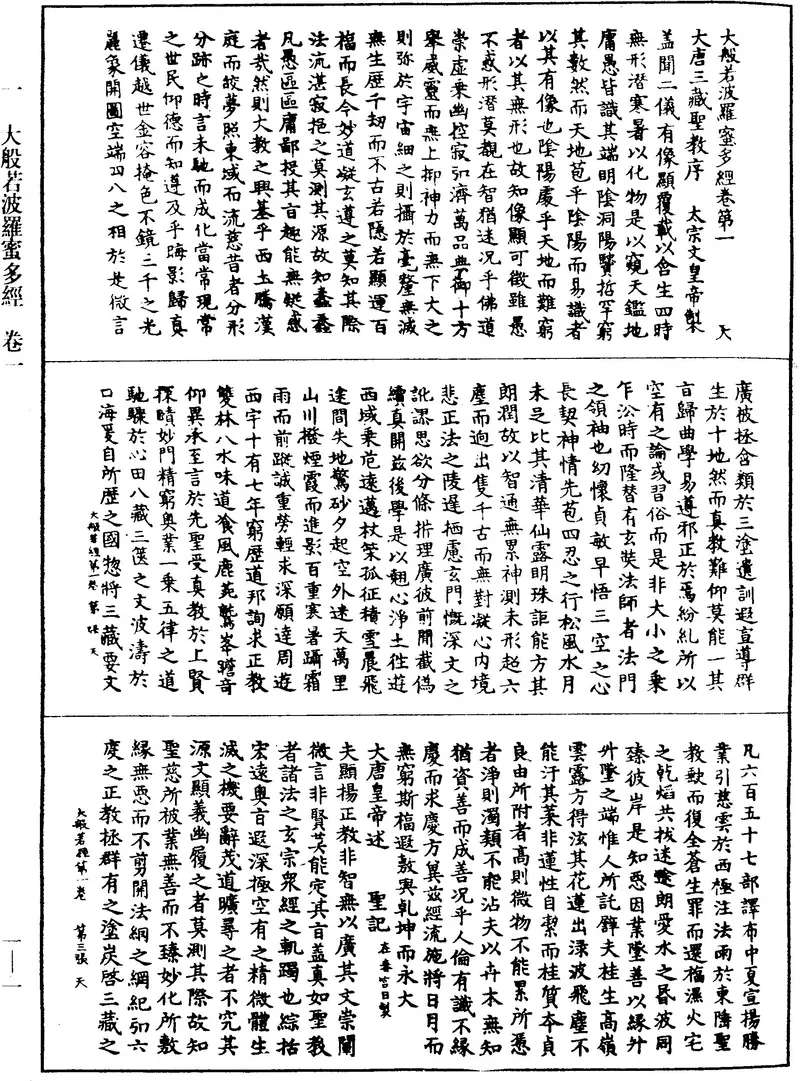 大般若波羅蜜多經卷第一
大唐三藏聖教序　太宗文皇帝製　天
蓋聞二儀有像顯覆載以含生四時
無形潜寒暑以化物是以窺天鑑地
庸愚皆識其端明陰洞陽賢哲罕窮
其數然而天地苞乎陰陽而易識者
以其有像也陰陽處乎天地而難窮
者以其無形也故知像顯可徵雖愚
不惑形潜莫覩在智猶迷況乎佛道
崇虛乘幽控寂弘濟萬品典御十方
舉威靈而無上抑神力而無下大之
則弥於宇宙細之則攝於毫釐無滅
無生歷千劫而不古若隱若顯運百
福而長今妙道凝玄導之莫知其際
法流湛寂挹之莫測其源故知蠢蠢
凡愚區區庸鄙投其旨趣能無疑惑
者哉然則大教之興基乎西土騰漢
庭而皎夢照東域而流慈昔者分形
分跡之時言未馳而成化當常現常
之世民仰德而知遵及乎晦影歸真
遷儀越世金容掩色不鏡三千之光
麗象開圖空端四八之相於是微言
廣被拯含類於三塗遺訓遐宣導群
生於十地然而真教難仰莫能一其
旨歸曲學易遵邪正於焉紛糺所以
空有之論或習俗而是非大小之乘
乍沿時而隆替有玄奘法師者法門
之領袖也幼懷貞敏早悟三空之心
長契神情先苞四忍之行松風水月
未足比其清華仙露明珠詎能方其
朗潤故以智通無累神測未形超六
塵而迥出隻千古而無對凝心內境
悲正法之陵遲栖慮玄門慨深文之
訛謬思欲分條㭊理廣彼前聞截偽
續真開茲後學是以翹心淨土往遊
西域乘危遠邁杖筞孤征積雪晨飛
途間失地驚砂夕起空外迷天萬里
山川撥煙霞而進影百重寒暑躡霜
雨而前蹤誠重勞輕求深願達周遊
西宇十有七年窮歷道邦詢求正教
雙林八水味道飡風鹿苑鷲峯瞻奇
仰異承至言於先聖受真教於上賢
探賾妙門精窮奧業一乘五律之道
馳驟於心田八藏三篋之文波濤於
口海爰自所歷之國惣將三藏要文
大般若經第一卷　第二張　天
凡六百五十七部譯布中夏宣揚勝
業引慈雲於西極注法雨於東陲聖
教缺而復全蒼生罪而還福濕火宅
之乾焰共拔迷途朗愛水之昏波同
臻彼岸是知惡因業墜善以緣升
升墜之端惟人所託譬夫桂生高嶺
雲露方得泫其花蓮出淥波飛塵不
能汙其葉非蓮性自潔而桂質本貞
良由所附者高則微物不能累所憑
者淨則濁類不能沾夫以卉木無知
猶資善而成善況乎人倫有識不緣
慶而求慶方冀茲經流施將日月而
無窮斯福遐敷與乾坤而永大
大唐皇帝述　聖記　在春宮日製
夫顯揚正教非智無以廣其文崇闡
微言非賢莫能定其旨蓋真如聖教
者諸法之玄宗衆經之軌躅也綜括
宏遠奧旨遐深極空有之精微體生
滅之機要辭茂道曠尋之者不究其
源文顯義幽履之者莫測其際故知
聖慈所被業無善而不臻妙化所敷
緣無惡而不剪開法網之綱紀弘六
度之正教拯群有之塗炭啓三藏之
大般若經第一卷　第三張　天
一　大般若波羅蜜多經　卷一
一—一